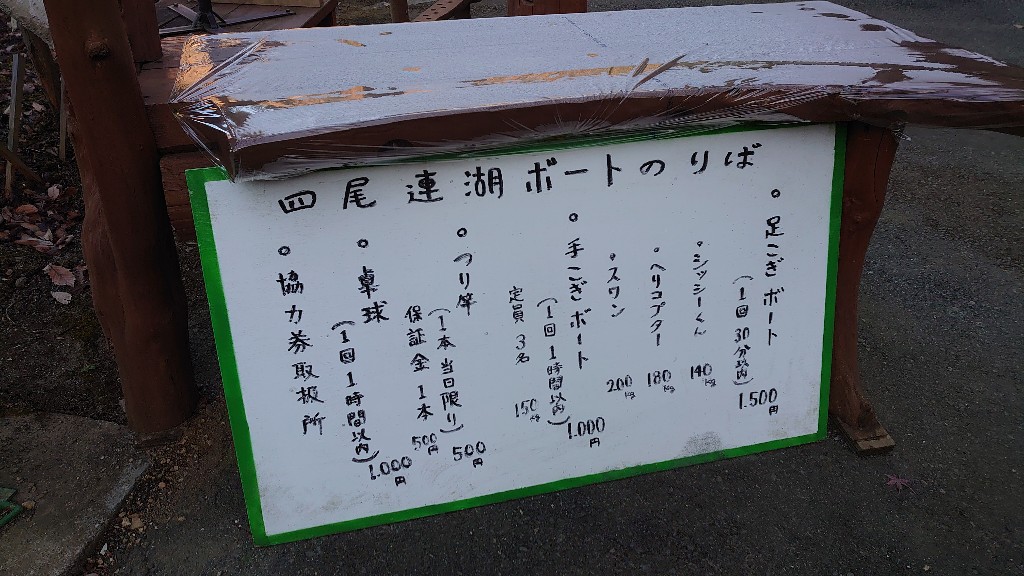 四尾連湖ボートのりば
○足こぎボート
(1回30分以内) 1.500円
・シッシーくん 140kg
・ヘリコプター 180kg
・スワン 200kg
○手こぎボート
(1回1時間以内) 1.000円
定員3名 150kg
○つり竿
(1本当日限り) 500円
保証金1本 500円
○卓球
(1回1時間以内) 1.000円
○協力券取扱所